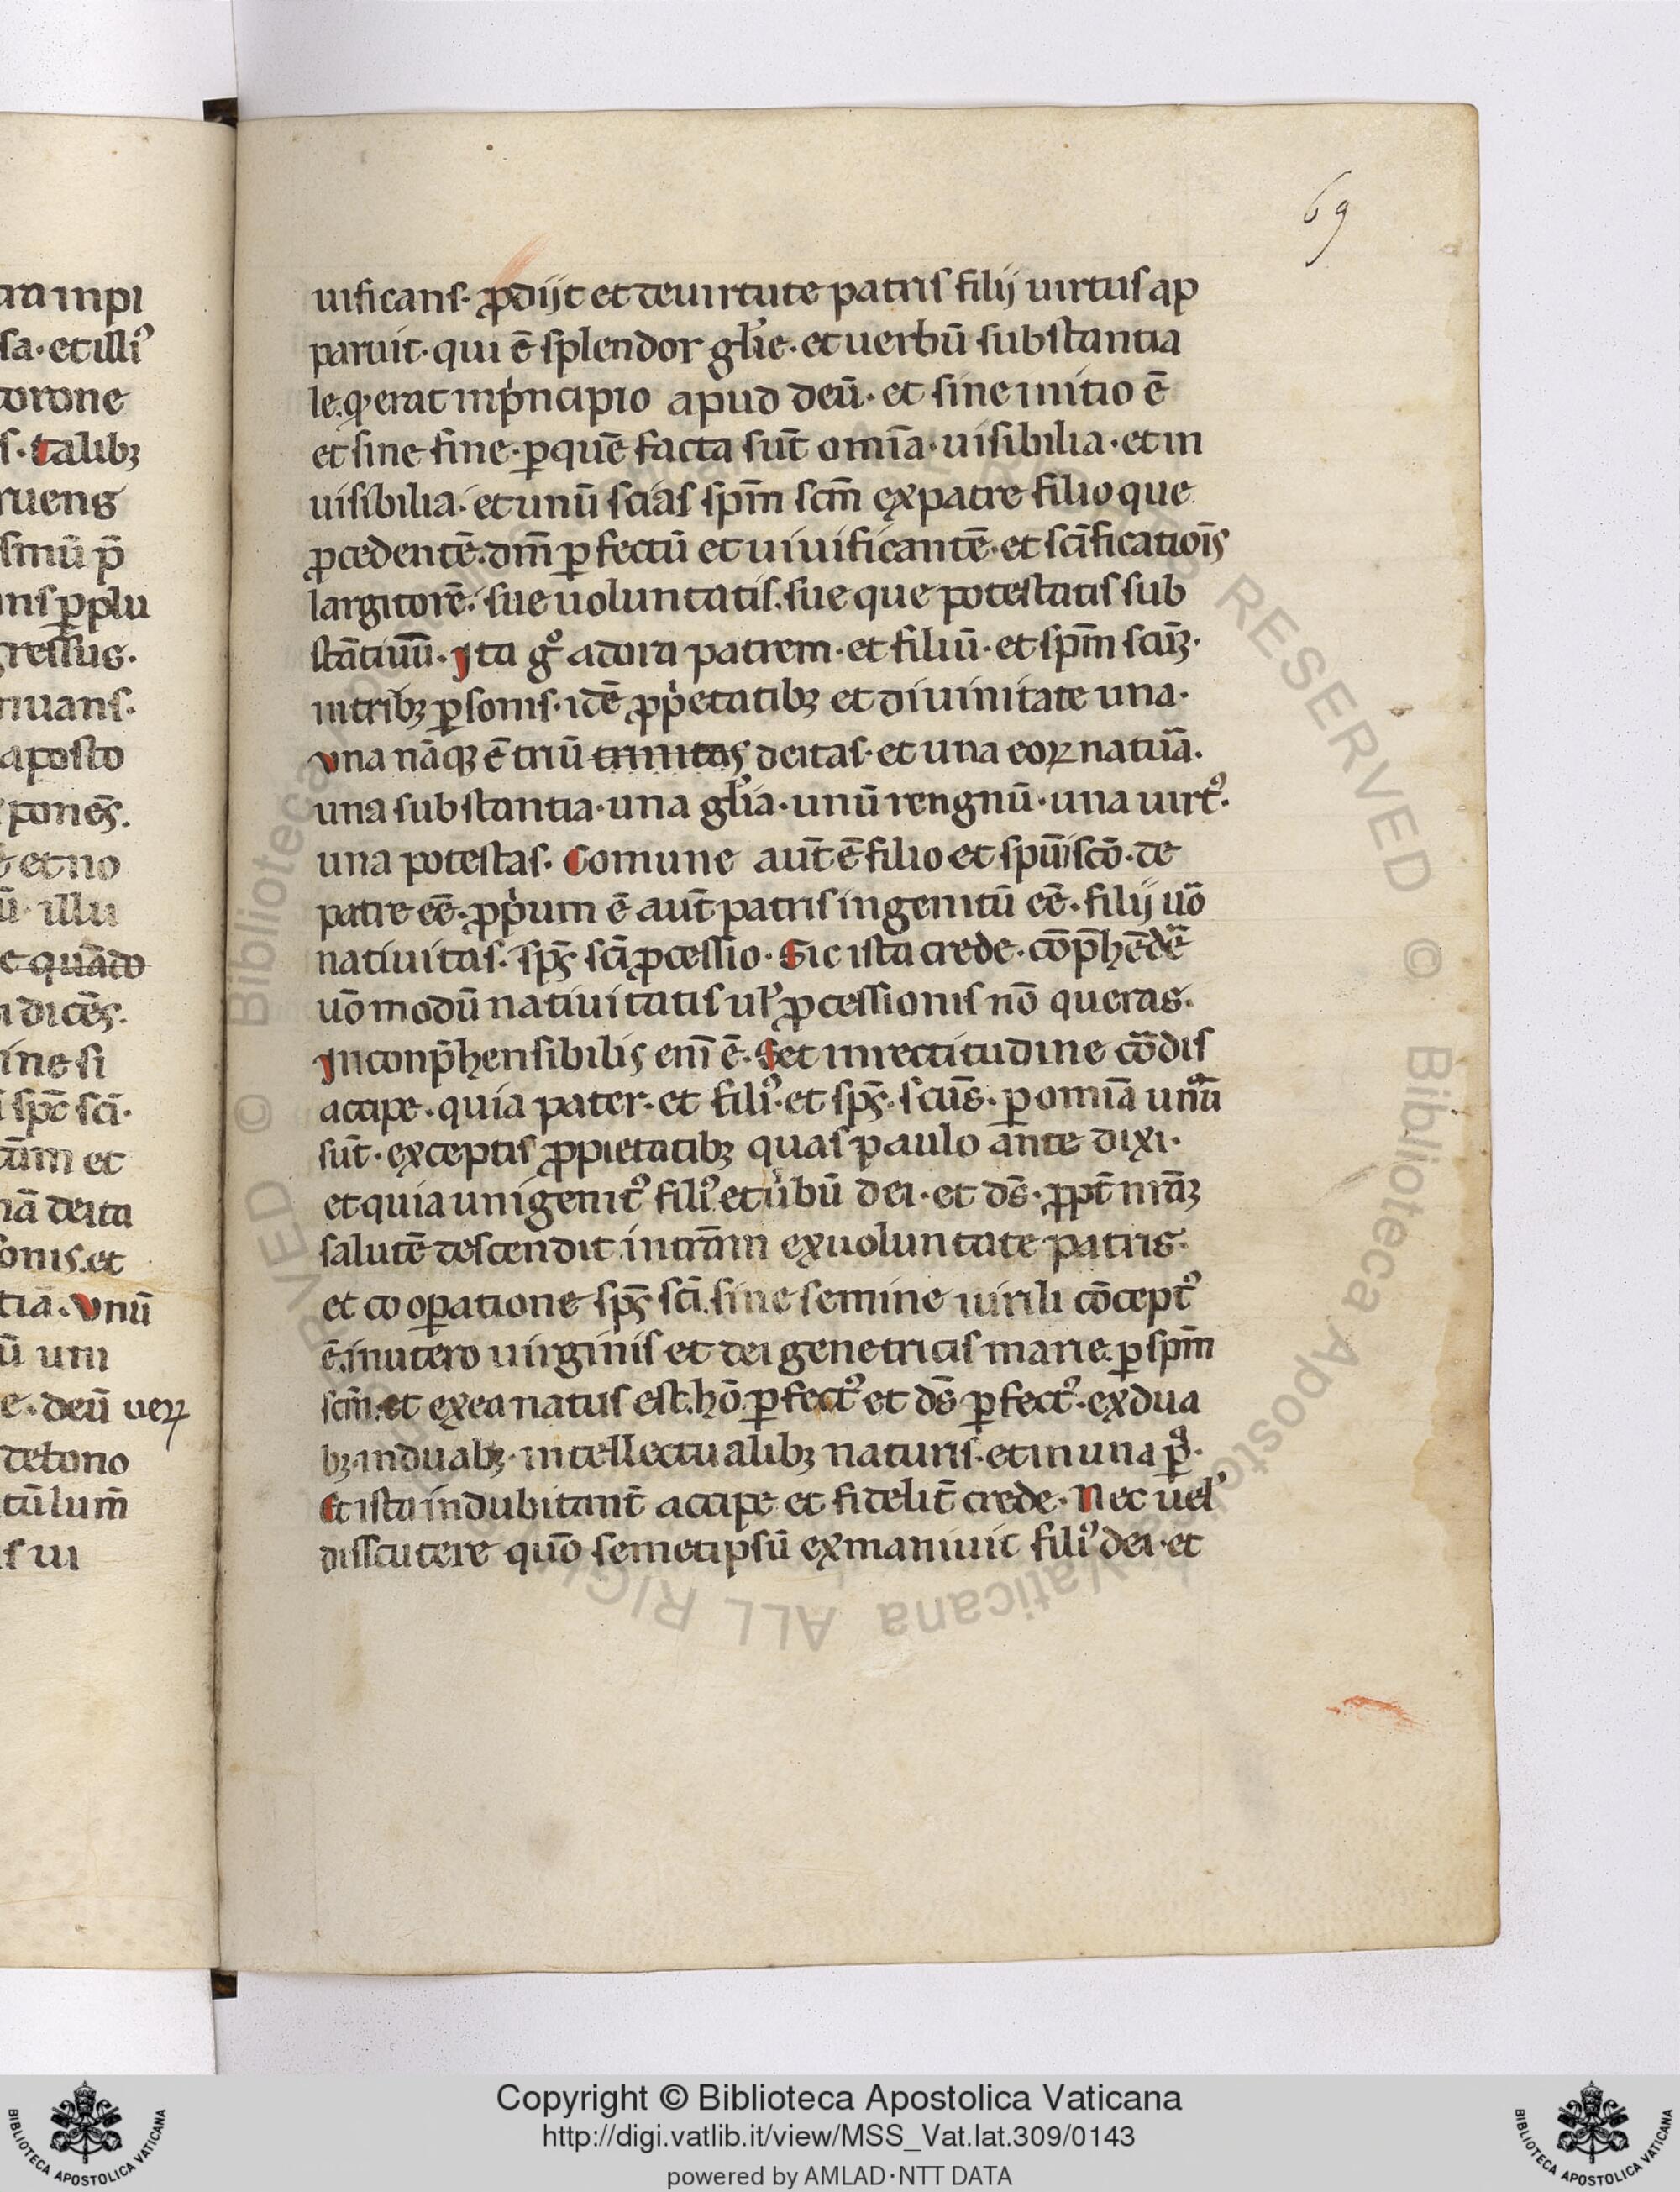 69
uificans. ꝓdijt et deuirtute patris filij uirtus ap
paruit. qui ē splendor gl̄ie. et uerbū substantia
le. qꝫ erat inpͥncipio apud deū. et sine initio ē
et sine fine. ꝑquē facta sūt omīa. uisibilia. et in
uisibilia. et unū scias sp̄m sc̄m expatre filio que
ꝓcedentē. dn̄m ꝑfectū et uiuificantē. et sc̄ificatiōīs
largitorē. sue uoluntatis. sue que potestatis sub
stātiuū. Ita gͦ adora patrem. et filiū. et sp̄m scūꝫ.
intribꝫ ꝑsonis. idē ꝓpͥetatibꝫ et diuinitate una.
Vna nāqꝫ ē triū trinitas deitas. et una eoꝝ natūa.
una substantia. una gl̄ia. unū rengnū. una uirtꝰ.
una potestas. Comune aūt ē filio et spūi scō. de
patre eē. ꝓpͥum ē aūt patris ingenitū eē. filij uō
natiuitas. sp̄s sc̄i ꝓcessio. Sic ista crede. cōp̄hēdē
uō modū natiuitatis ul̓ ꝓcessionis nō queras.
Inconp̄hensibilis enī ē. Set inrectitudine cōdis
accipe. quia pater. et filiꝰ. et sp̄s. scūs. ꝑ omīa unū
sūt. exceptis ꝓpietatibꝫ quas paulo ante dixi.
et quia unigenitꝰ filiꝰ et ūbū dei. et ds̄. ꝓpt̄ nr̄aꝫ
salutē descendit in trām exuoluntate patris.
et co oꝑatione sp̄s sc̄i. sine semine uirili cōceptꝰ
ē. inutero uirginis et dei genetricis marie. ꝑ sp̄m
sc̄m. et exea natus est. hō ꝑfectꝰ et ds̄ ꝑfectꝰ. exdua
bꝫ. induabꝫ. intellectualibꝫ naturis. et in una ꝑᵃ.
Et ista indubitant̄ accipe et fidelit̄ crede. Nec uel̓
disscutere quō semetipsū exmaniuit filiꝰ dei. et
Copyright © Biblioteca Apostolica Vaticana
http://digi.vatlib.it/view/MSS_Vat.lat.309/0143
powered by AMLAD·NTT DATA
BIBLIOTECA APOSTOLICA VATICANA
BIBLIOTECA APOSTOLICA VATICANA